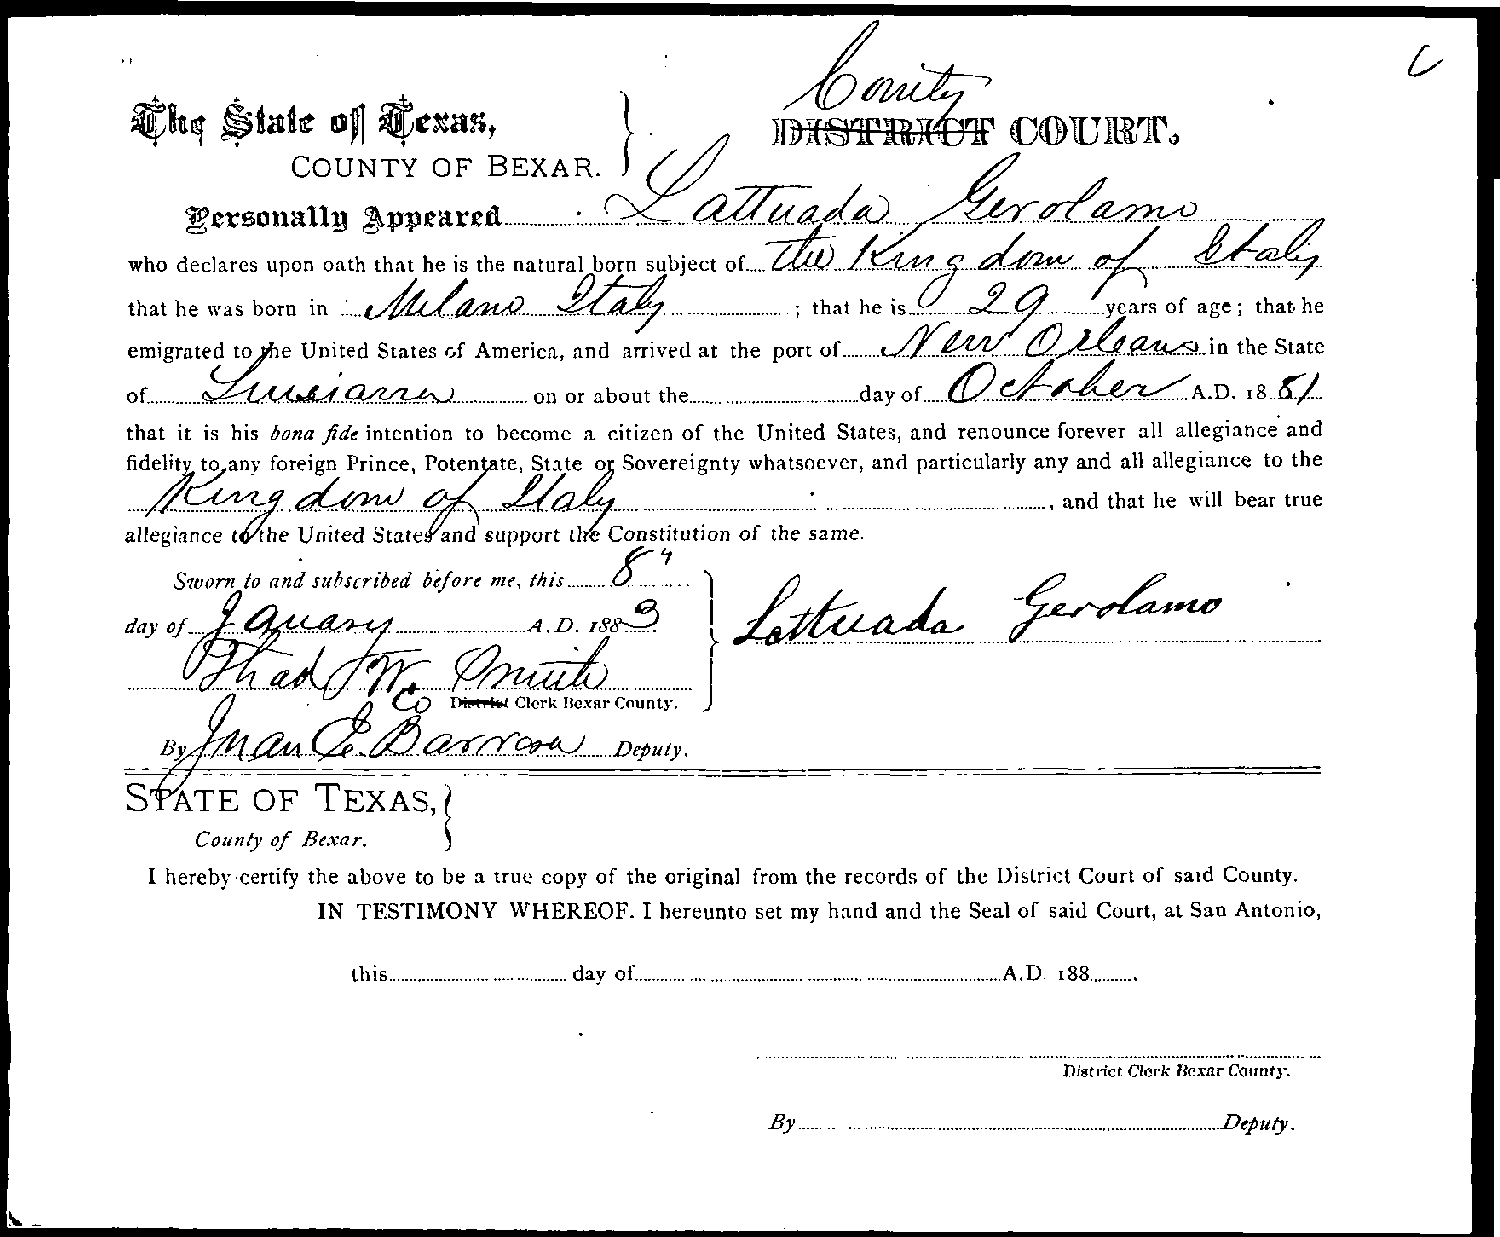 County
The State of Texas, DISTRICT COURT.
COUNTY OF BEXAR.
Personally Appeared Lattuada Gerolamo
who declares upon oath that he is the natural born subject of the Kingdom of Italy
that he was born in Milano Italy ; that he is 29 years of age; that he
emigrated to the United States of America, and arrived at the port of New Orleans in the State
of Louisiana on or about the day of October A.D. 1881
that it is his bona fide intention to become a citizen of the United States, and renounce forever all allegiance and
fidelity to any foreign Prince, Potentate, State or Sovereignty whatsoever, and particularly any and all allegiance to the
Kingdom of Italy, and that he will bear true
allegiance to the United States and support the Constitution of the same.
Sworn to and subscribed before me, this 8"
day of January A. D. 1883 Lattuada Gerolamo
Thad W. Smith
Co District Clerk Bexar County.
By Juan E. Barrera Deputy.
STATE OF TEXAS,
County of Bexar.
I hereby certify the above to be a true copy of the original from the records of the District Court of said County.
IN TESTIMONY WHEREOF. I hereunto set my hand and the Seal of said Court, at San Antonio,
this day of A.D. 188 .
District Clerk Bexar County.
By Deputy.